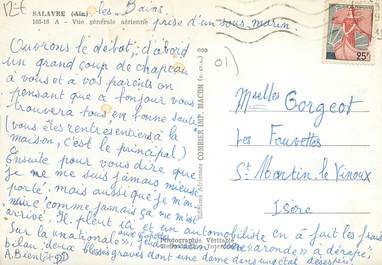 12-t
SALAVRE (Ain) les Bains
168-18 A - Vue générale aérienne prise d'un sous marin
01)
25F
Ouvrons le débat; d'abord
un grand coup de chapeau
à vous et à vos parents en
pensant que ce bonjour vous
trouvera tous en bonne santé
(vous êtes rentrés entiers à la
maison, c'est le principal)
Ensuite pour vous dire que
je ne me suis jamais mieux
porté, mais aussi que je m'en
comme jamais ça ne m'est
arrivé. Il pleut ici et un automobiliste en a fait les frais
sur la "nationale" aronde" a dérapé,
bilan deux blessés graves dont une dame dans un état désespéré.
A Bientôt
Editions Aériennes COMBIER IMP. MACON
Photographie Véritable
Mselles Gorgeot
Les Fauvettes
St Martin le Vinoux
Isère